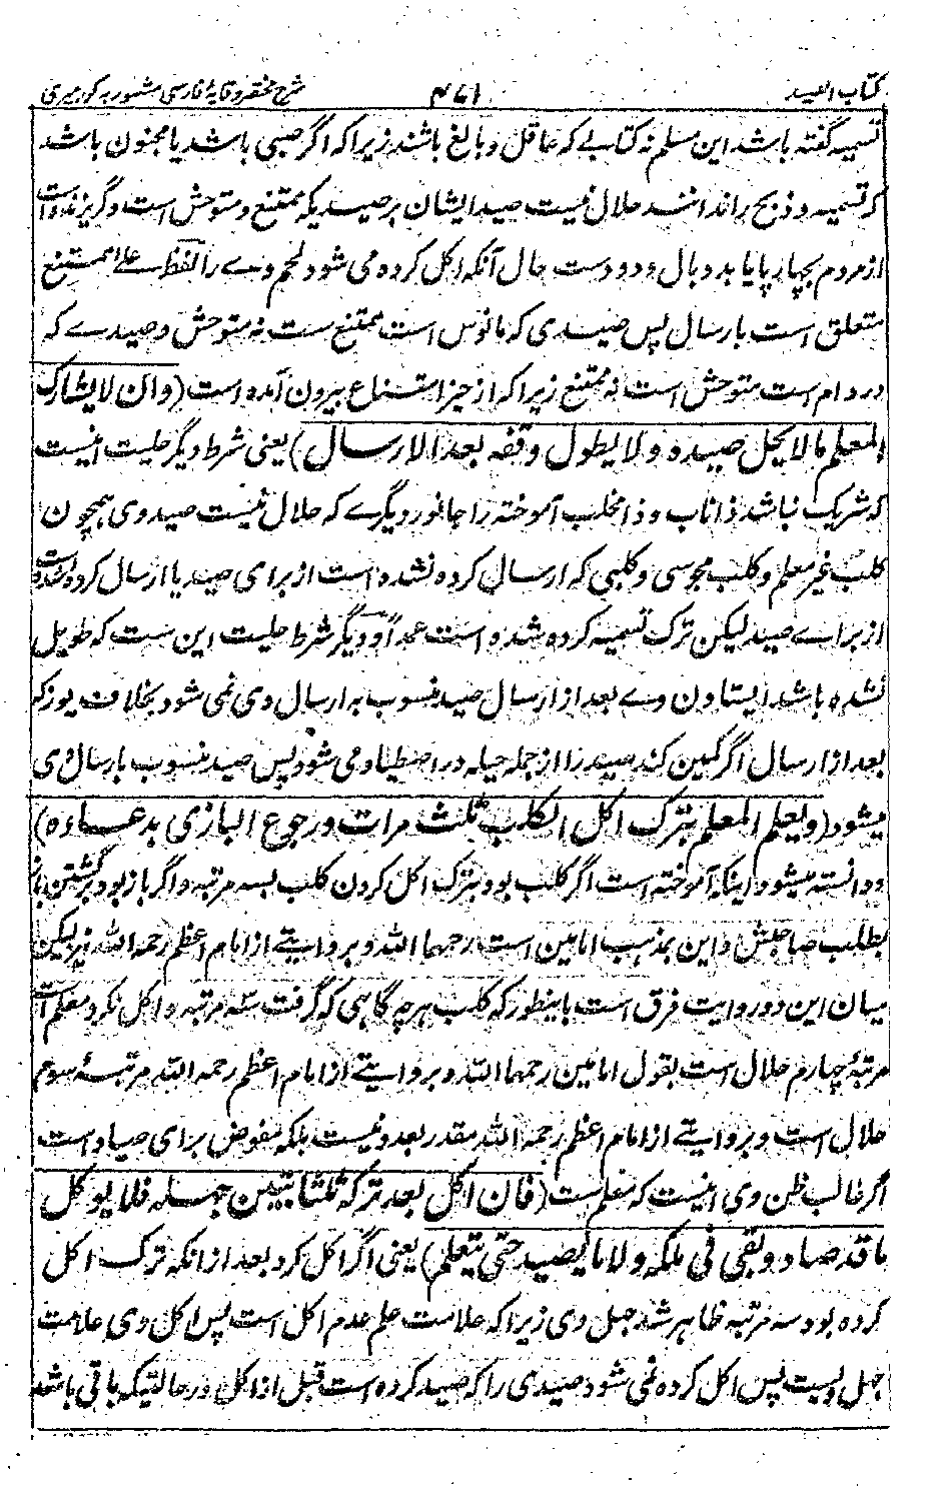 کتاب الصید ۴۷۱ شرح مختصر وقایهٔ فارسی مشهور به کور میری
تسمیه گفته باشد این مسلم نه کتابے که عاقل و بالغ باشند زیرا که اگر صبی باشد یا مجنون باشد
که تسمیه و ذبح را ندانند حلال نیست صید ایشان هر صیدیکه ممتنع و متوحش است و گریزنده است
از مردم بچهار پایا بدو بال و دو دست حال آنکه اکل کرده می شود لحم وے را لفظ علے ممتنع
متعلق است بارسال پس صیدی که مانوس است ممتنع ست نه متوحش و صیدے که
در دام است متوحش است نه ممتنع زیرا که از حیز امتناع بیرون آمده است (وان لا یشارک
المعلم ما لا یحل صیده ولا یطول وقفه بعد الارسال) یعنی شرط دیگر حلیت اینست
که شریک نباشد ذا ناب و ذا مخلب آموخته را جانور دیگرے که حلال نیست صید وی همچون
کلب غیر معلم و کلب مجوسی و کلبی که ارسال کرده نشده است از برای صید یا ارسال کرده شده است
از براے صید لیکن ترک تسمیه کرده شده است عمداً و دیگر شرط حلیت این ست که طویل
نشده باشد ایستادن وے بعد از ارسال صید منسوب به ارسال وی نمی شود بخلاف یوز که
بعد از ارسال اگر کمین کند صید را از جمله حیله در اصطیاد می شود پس صید منسوب بارسال وی
میشود (ویعلم المعلم بترک اکل الکلب ثلث مرات ورجوع البازی بدعاءه)
و دانسته میشود اینکه آموخته است اگر کلب بود بترک اکل کردن کلب بسه مرتبه و اگر باز بود برگشتن باز
بطلب صاحبش و این بمذهب امامین است رحمهما الله و بروایتے از امام اعظم رحمه الله نیز لیکن
میان این دو روایت فرق است باینطور که کلب هرچه گاهی که گرفت سه مرتبه و اکل نکرد معلم است
مرتبهٔ چهارم حلال است بقول امامین رحمهما الله و بروایتے از امام اعظم رحمه الله مرتبهٔ سوم
حلال است و بروایتے از امام اعظم رحمه الله مقدر بعدد نیست بلکه مفوض برای صیاد است
اگر غالب ظن وی اینست که معلم ست (فان اکل بعد ترکه ثلثا تبین جهله فلا یوکل
ما قد صاد و بقی فی ملکه ولا ما یصید حتی یتعلم) یعنی اگر اکل کرد بعد از انکه ترک اکل
کرده بود سه مرتبه ظاهر شد جهل وی زیرا که علامت علم عدم اکل است پس اکل وی علامت
جهل ویست پس اکل کرده نمی شود صیدی را که صید کرده است قبل از اکل در حالتیکه باقی باشد